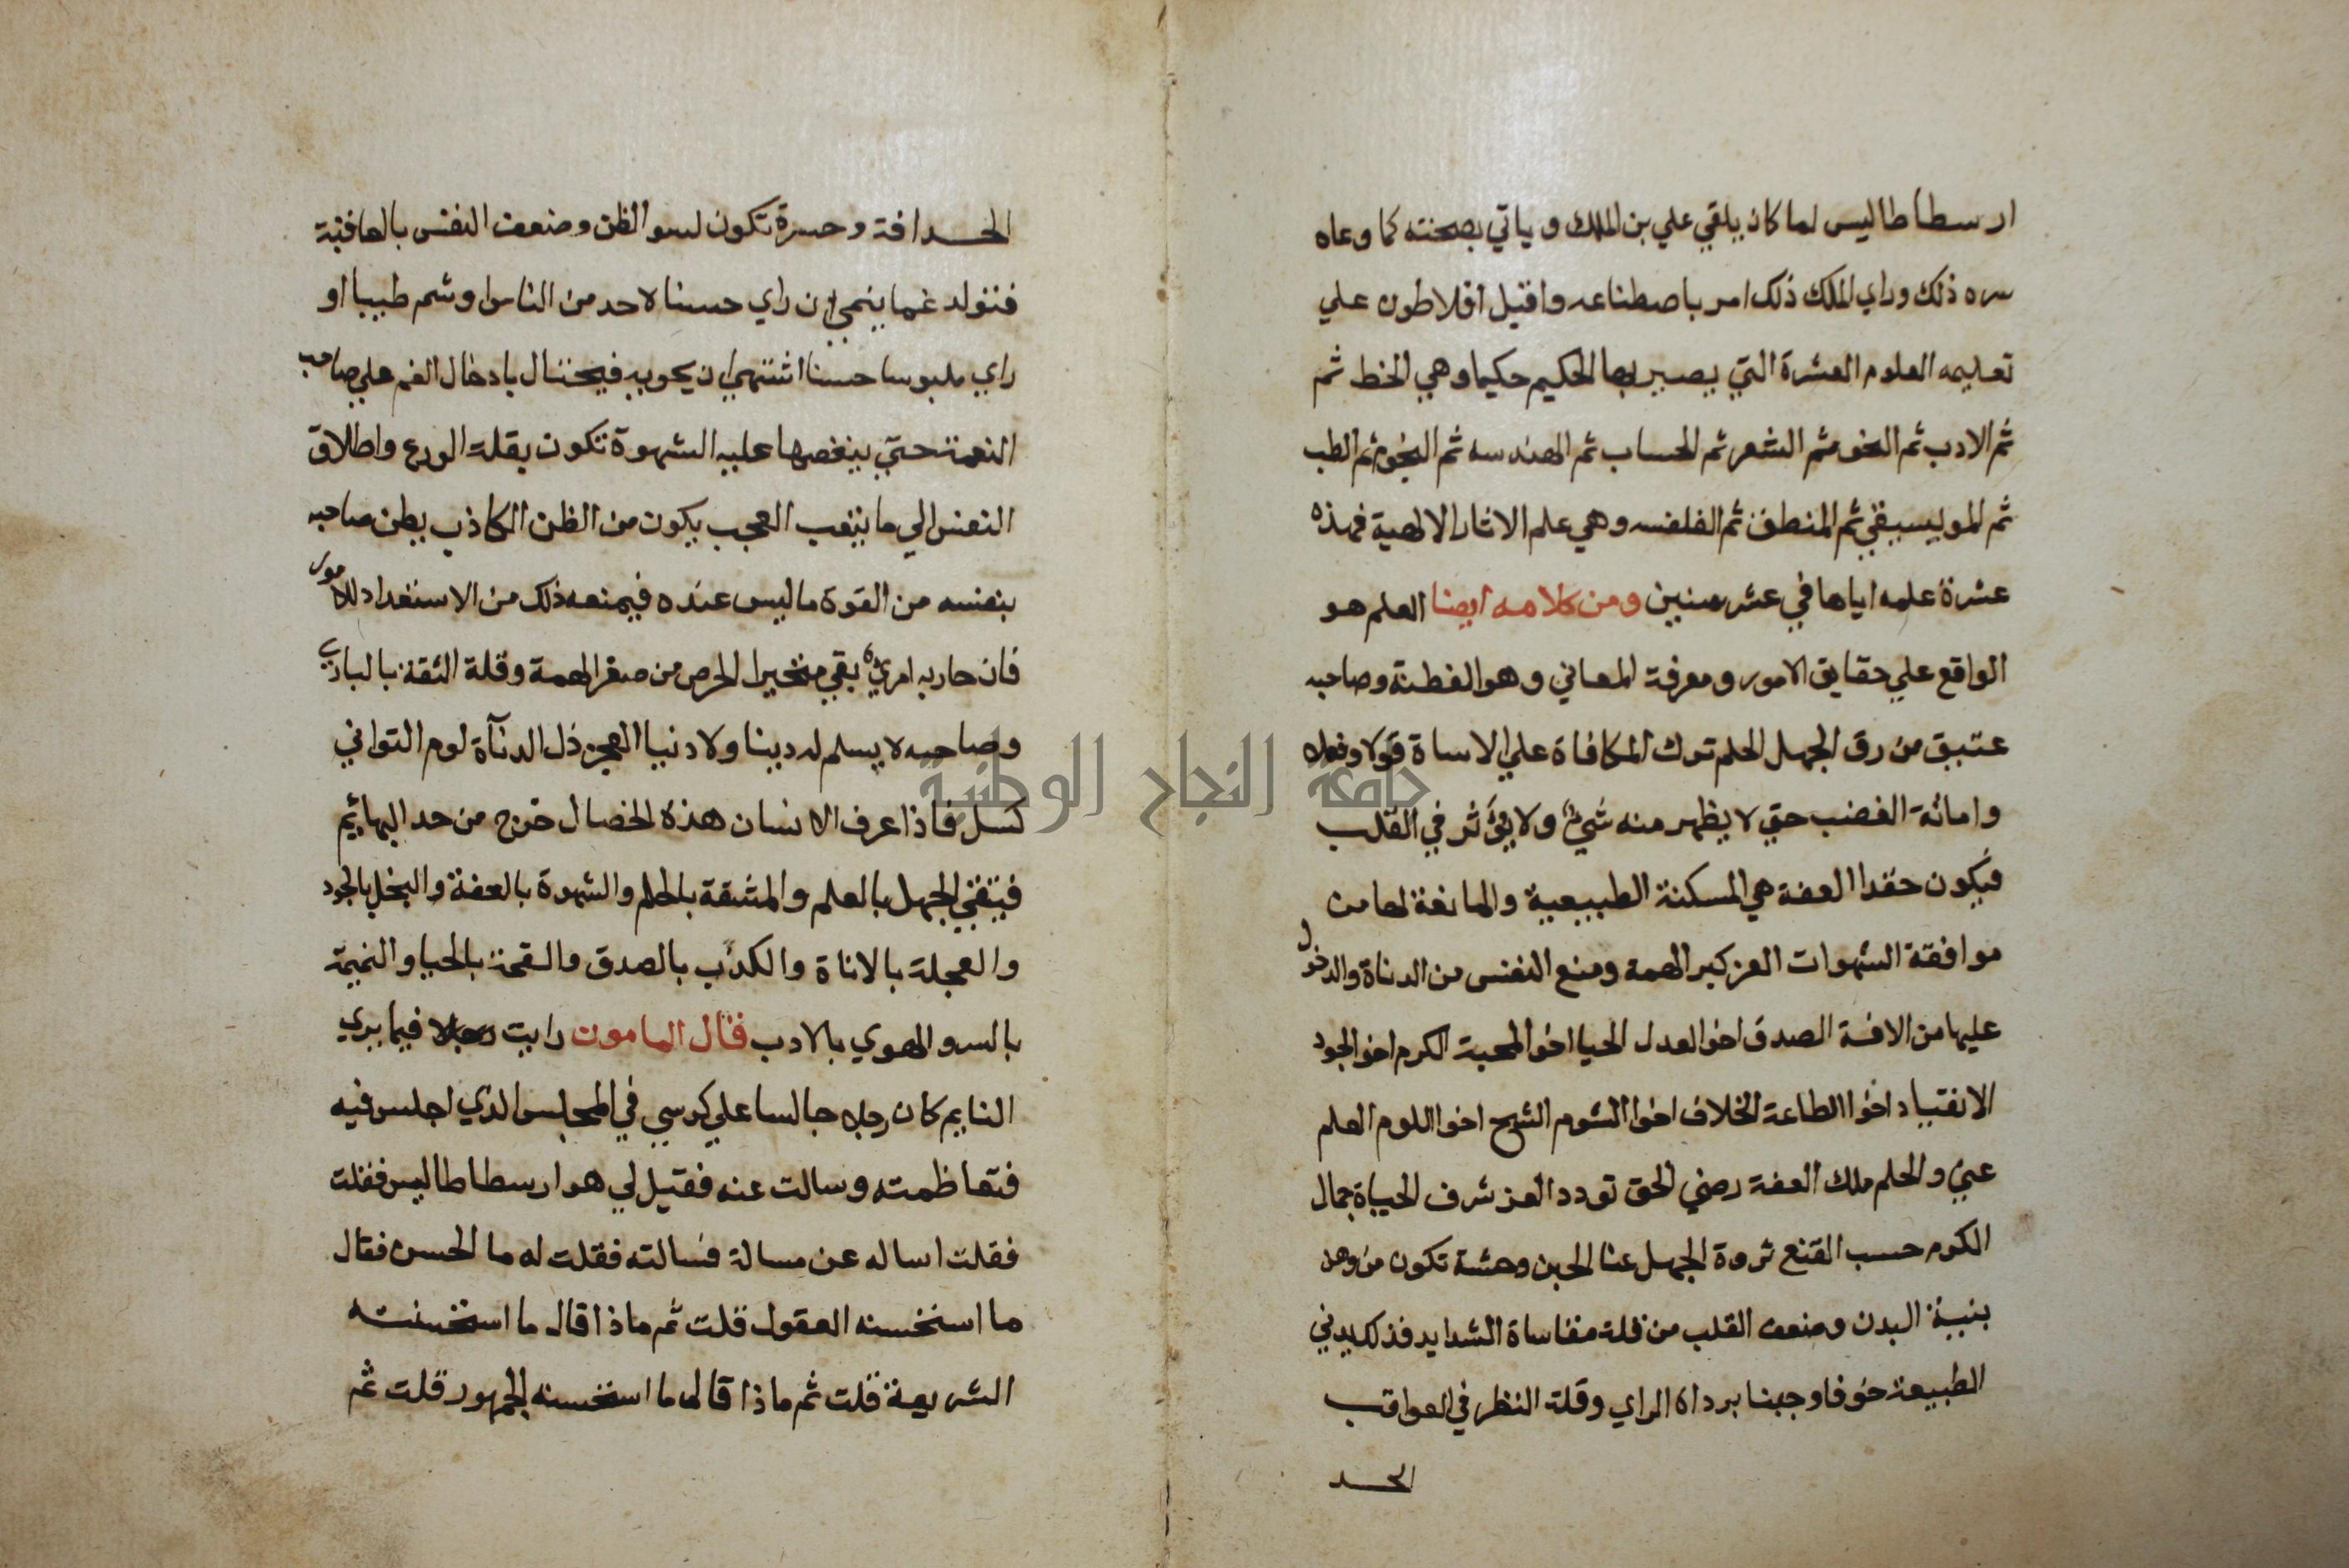 ارسطاطاليس لما كان يلقي علي بن الملك و ياتي بصحنته كما وعاه
سره ذلك وراي الملك ذلك امر باصطناعه واقيل افلاطون علي
تعليمه العلوم العشرة التي يصير بها الحكيم حكيما وهي الخط ثم
ثم الادب ثم النحو ثم الشعر ثم الحساب ثم الهندسه ثم النجوم ثم الطب
ثم الموليسيقي ثم المنطق ثم الفلفسه وهي علم الاثار الالهية فهذه
عشرة علمه اياها في عشر سنين ومن كلامه ايضا العلم هو
الواقع علي حقايق الامور ومعرفة المعاني وهو الفطنة وصاحبه
عتيق من رق الجهل الحلم ترك المكافاة علي الاساة قولا وفعلا
واماتة الغضب حتي لا يظهر منه شيء ولا يؤثر في القلب
فيكون حقدا العفة هي المسكنة الطبيعية والمانعة لها من
موافقة الشهوات العز كبر الهمة ومنع النفس من الدناة والدخول
عليها من الافة الصدق اخو العدل الحيا اخو المحبة الكرم اخو الجود
الانقياد اخوا الطاعة الخلاف اخوا الشوم الشح اخوا اللوم العلم
عني والحلم ملك العفة رضي الحق تودد العز شرف الحياة جمال
الكرم حسب القنع ثروة الجهل عنا الجبن وحشة تكون من وهن
بنية البدن وضعف القلب من قلة مقاساة الشدايد فذلك يدني
الطبيعة خوفا وجبنا برداة الراي وقلة النظر في العواقب
الحسد
الحسد افة وحسرة تكون لسو الظن وضعف النفس بالعافية
فتولد غما ينمي ان راي حسنا لاحد من الناس او شم طيبا او
راي ملبوسا حسنا اشتهي ان يحويه فيحتال بادخال الغم علي صاحب
النعمة حتي ينغصها عليه الشهوة تكون بقلة الورع واطلاق
النفس الي ما يتغب العجب يكون من الظن الكاذب يظن صاحبه
بنفسه من القوة ما ليس عنده فيمنعه ذلك من الاستعداد للامور
فان حاربه امريء بقي متحيرا الحرص من صغر الهمة وقلة الثقة بالباري
وصاحبه لا يسلم له دينا ولا دنيا العجز ذل الدنآة لوم التواني
كسل فاذا عرف الانسان هذه الخصال خرج من حد البهايم
فيتقي الجهل بالعلم والمشقة بالحلم والشهوة بالعفة والبخل بالجود
والعجلة بالاناة والكذب بالصدق والقحة بالحيا والنميمة
بالسو الهوي بالادب فقال المامون رايت رجلا فيما يري
النايم كان رجلا جالسا علي كرسي في المجلس الذي اجلس فيه
فتعاظمته وسالت عنه فقيل لي هو ارسطاطاليس فقلت
فقلت اساله عن مسالة فسالته فقلت له ما الحسن فقال
ما استحسنه العقول قلت ثم ماذا قال ما استحسنته
الشريعة قلت ثم ماذا قال ما استحسنه الجمهور قلت ثم
جامعة النجاح الوطنية